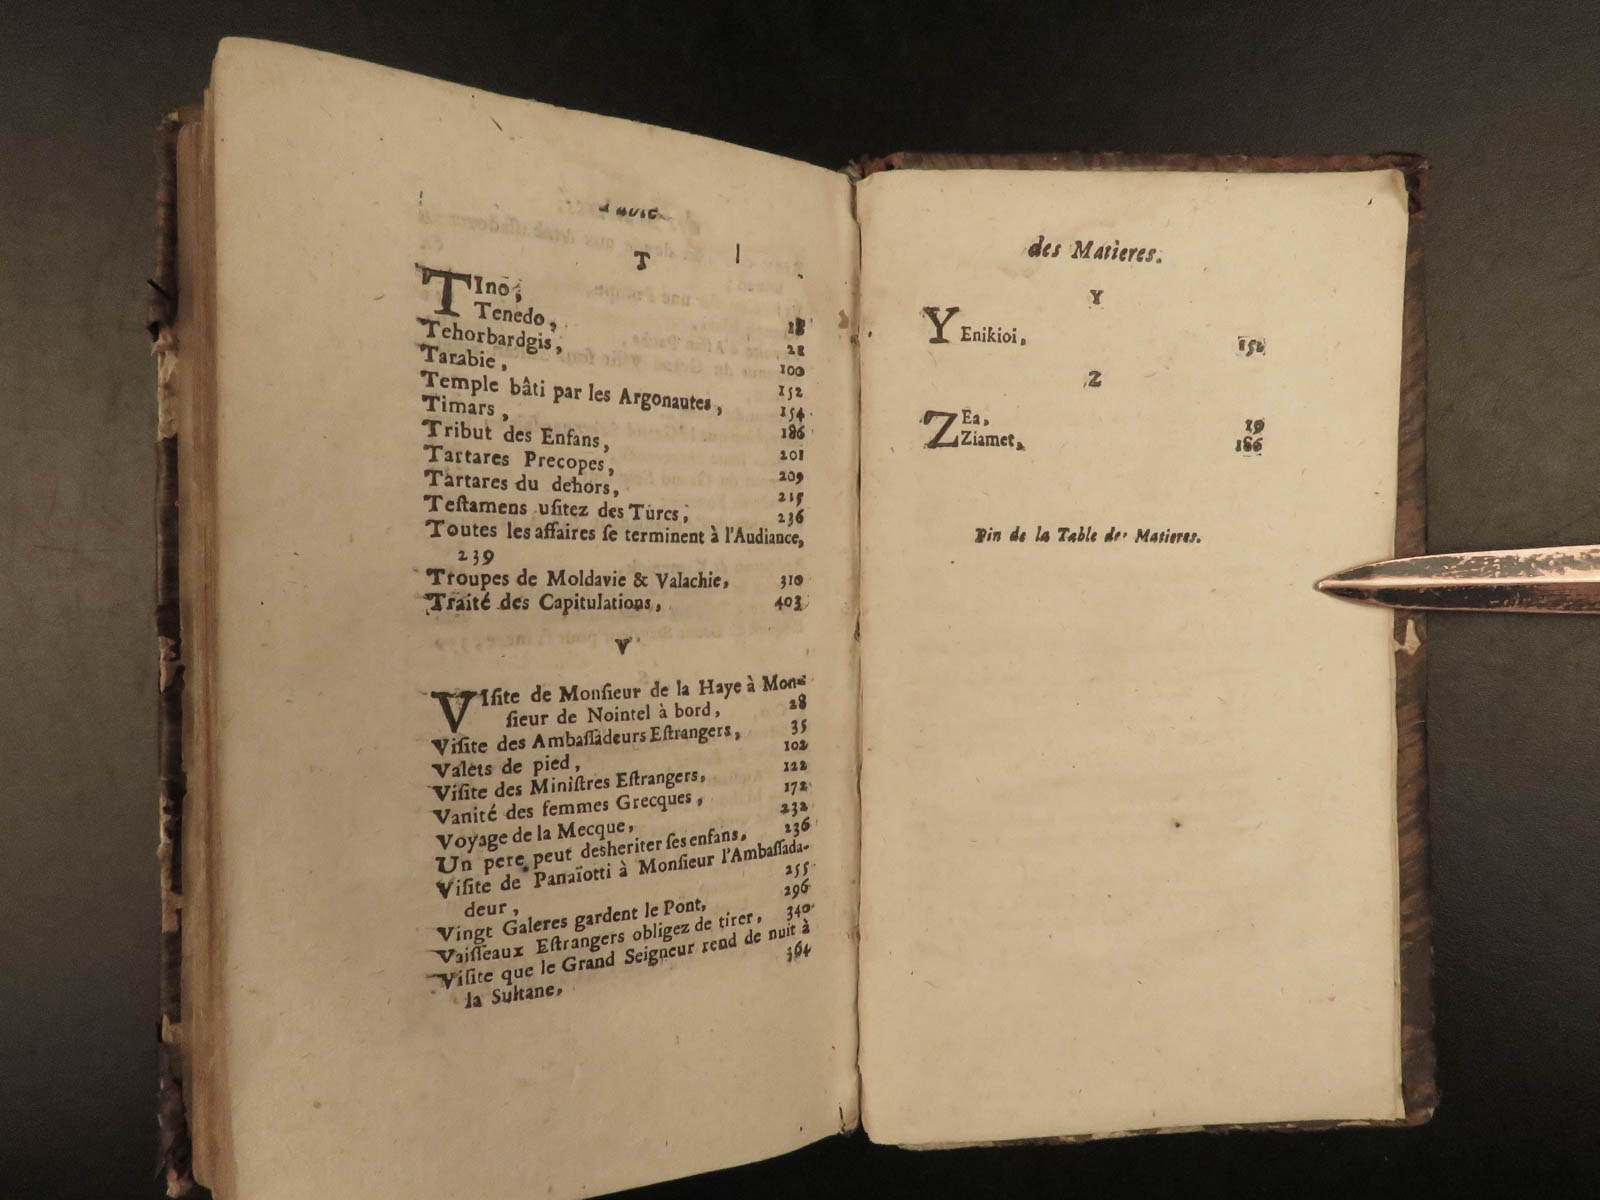 Table
T
TIno, 18
Tenedo, 21
Tehorbardgis, 100
Tarabie, 152
Temple bâti par les Argonautes, 154
Timars, 186
Tribut des Enfans, 201
Tartares Precopes, 209
Tartares du dehors, 215
Teſtamens uſitez des Turcs, 236
Toutes les affaires ſe terminent à l'Audiance,
239
Troupes de Moldavie & Valachie, 310
Traité des Capitulations, 403
V
VIſite de Monſieur de la Haye à Mon-
ſieur de Nointel à bord, 28
Viſite des Ambaſſadeurs Eſtrangers, 35
Valets de pied, 102
Viſite des Miniſtres Eſtrangers, 122
Vanité des femmes Grecques, 172
Voyage de la Mecque, 232
Un pere peut desheriter ſes enfans, 236
Viſite de Panaïotti à Monſieur l'Ambaſſada-
deur, 255
Vingt Galeres gardent le Pont, 296
Vaiſſeaux Eſtrangers obligez de tirer, 340
Viſite que le Grand Seigneur rend de nuit à
la Sultane, 364
des Matieres.
Y
YEnikioi, 152
Z
ZEa, 19
Ziamet, 186
Fin de la Table des Matieres.